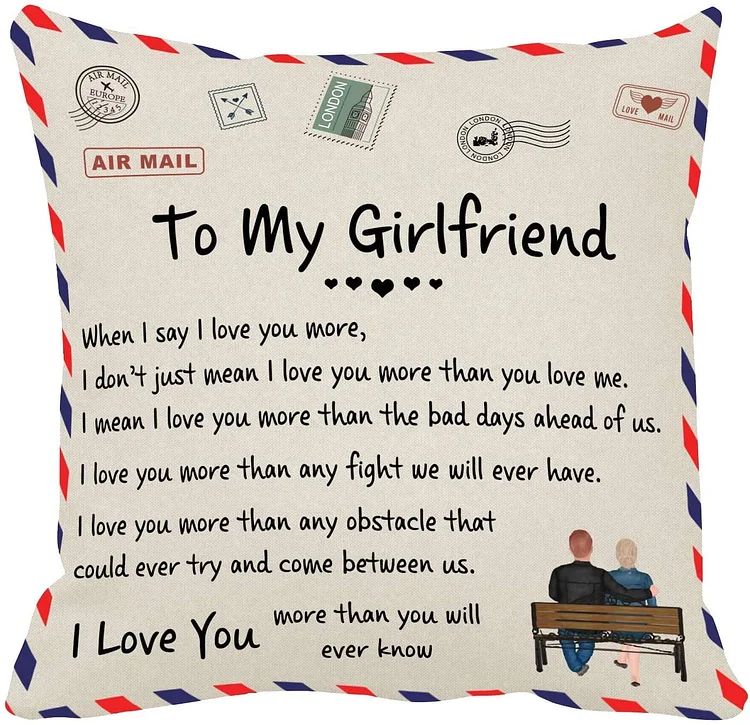 AIR MAIL
EUROPE
12345
LONDON
LONDON LONDON LONDON LONDON
LOVE MAIL
AIR MAIL
To My Girlfriend
When I say I love you more,
I don't just mean I love you more than you love me.
I mean I love you more than the bad days ahead of us.
I love you more than any fight we will ever have.
I love you more than any obstacle that
could ever try and come between us.
I Love You more than you will
ever know